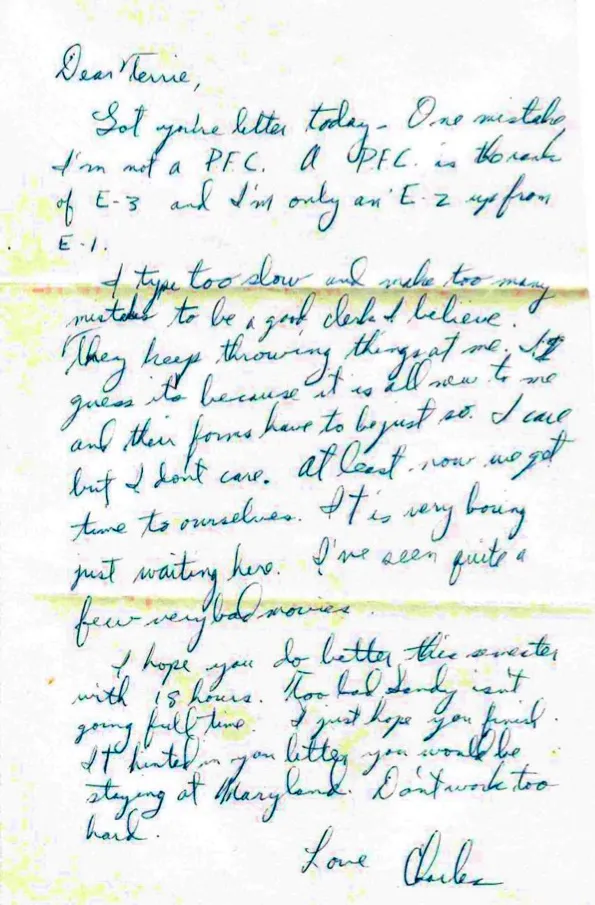 Dear Terrie,
Got you're letter today - One mistake
I'm not a P.F.C. A P.F.C. is the rank
of E-3 and I'm only an E-2 up from
E-1.
I type too slow and make too many
mistakes to be a good clerk I believe.
They keep throwing things at me. I
guess its because it is all new to me
and their forms have to be just so. I care
but I dont care. At least now we get
time to ourselves. It is very boring
just waiting here. I've seen quite a
few very bad movies.
I hope you do better this semester
with 18 hours. Too bad Sandy isn't
going full-time. I just hope you finish.
It hinted in you letter you would be
staying at Maryland. Don't work too
hard.
Love Charles